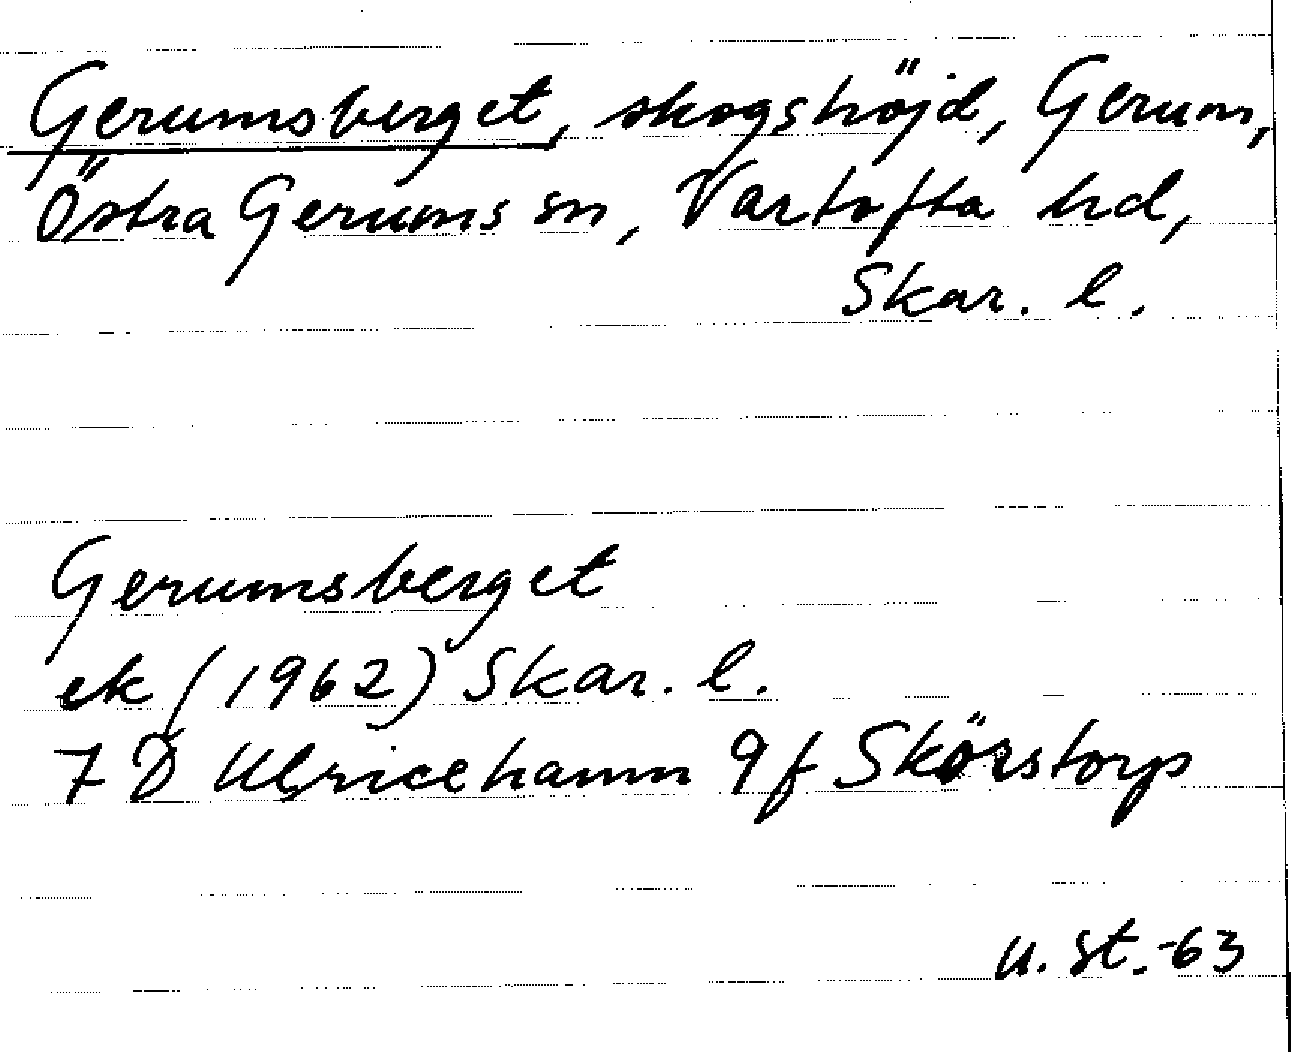 Gerumsberget, skogshöjd, Gerum,
Östra Gerums sn, Vartofta hd,
Skar. l.
Gerumsberget
ek (1962) Skar. l.
7 D Ulricehamn 9f Skörstorp
u. st. -63